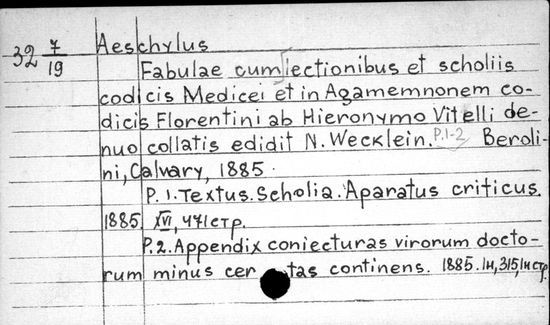 32 7/19 Aeschylus
Fabulae cum lectionibus et scholiis
codicis Medicei et in Agamemnonem co-
dicis Florentini ab Hieronymo Vitelli de-
nuo collatis edidit N. Wecklein. P.1-2 Beroli-
ni, Calvary, 1885.
P. 1. Textus. Scholia. Aparatus criticus.
1885. XVI, 471 стр.
P. 2. Appendix coniecturas virorum docto-
rum minus cer tas continens. 1885. 1н, 315, 1н стр.